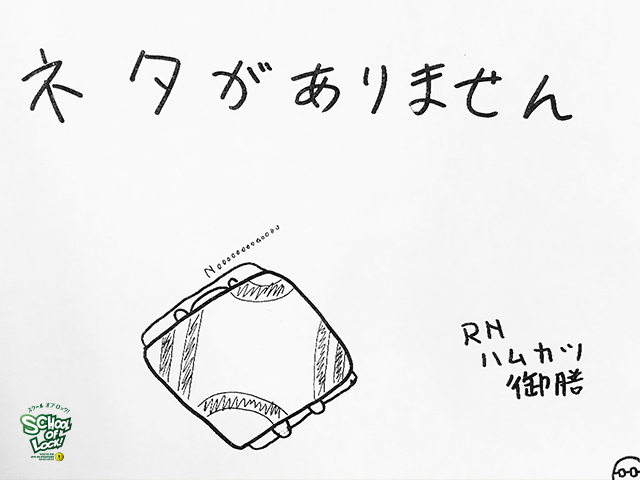 ネタがありません
Nooooooooooo
RN
ハムカツ
御膳
スクール オブ ロック!
SCHOOL
OF
LOCK!